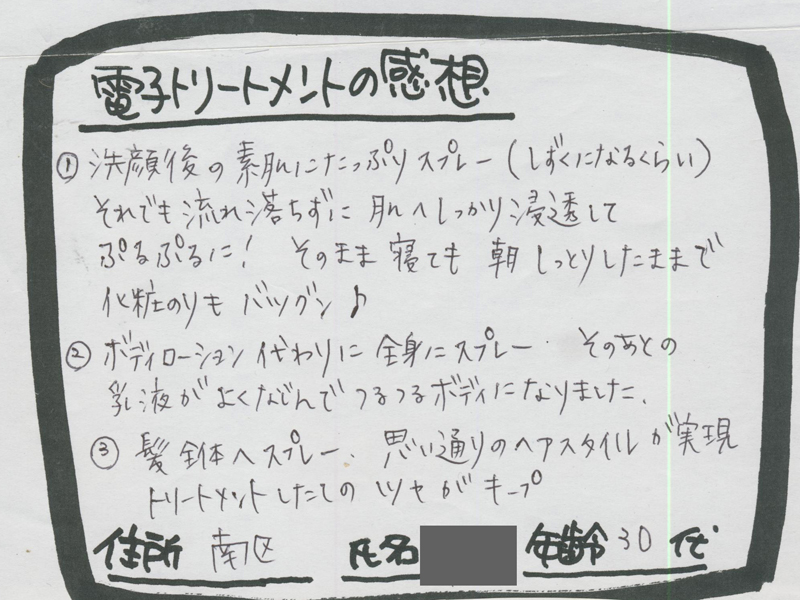 電子トリートメントの感想
① 洗顔後の素肌にたっぷりスプレー（しずくになるくらい）
それでも流れ落ちずに 肌へしっかり浸透して
ぷるぷるに！ そのまま寝ても 朝しっとりしたままで
化粧のりもバツグン♪
② ボディローション代わりに全身にスプレー そのあとの
乳液がよくなじんでつるつるボディになりました。
③ 髪全体へスプレー、思い通りのヘアスタイルが実現
トリートメントしたてのツヤがキープ
住所 南区 氏名 年齢 30代